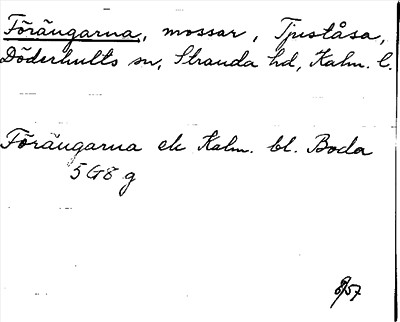 Förängarna, mossar, Tjuståsa,
Döderhults sn, Stranda hd, Kalm. l.
Förängarna ek Kalm. bl. Boda
5 G8 g